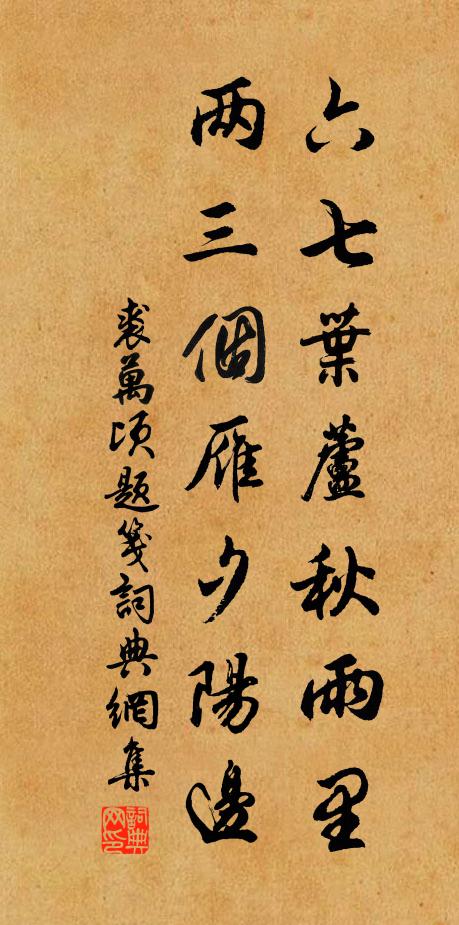 六七葉蘆秋雨里
两三個雁夕陽邊
裘萬頃題箋詞典網集
詞典网印